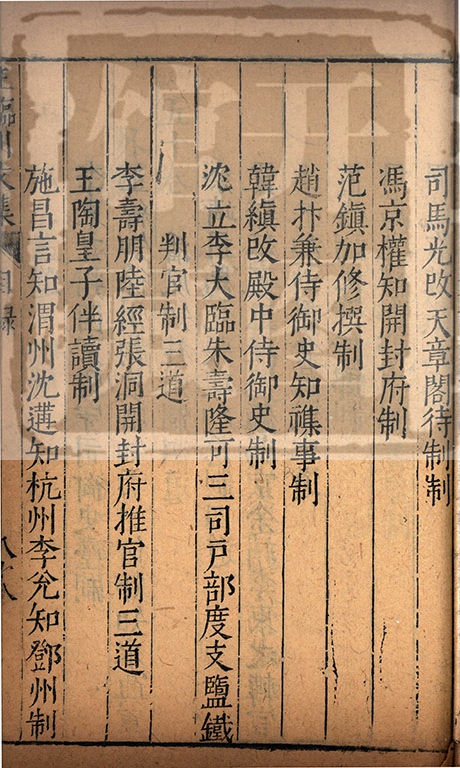 司馬光改天章閣待制制
馮京權知開封府制
范鎮加修撰制
趙抃兼侍御史知襍事制
韓縝改殿中侍御史制
沈立李大臨朱壽隆可三司戸部度支鹽鐵
判官制三道
李壽朋陸經張洞開封府推官制三道
王陶皇子伴讀制
施昌言知渭州沈遘知杭州李兊知鄧州制
臨川文集
目録